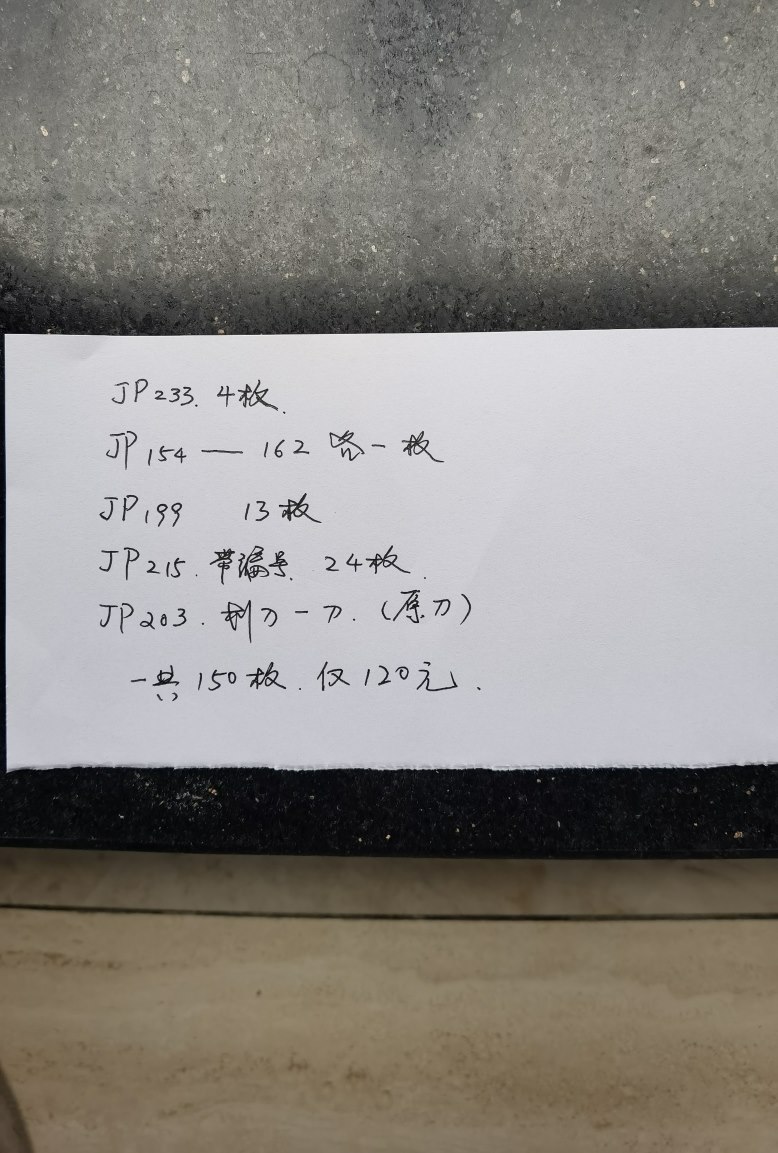 JP233. 4枚.
JP154 — 162 各一枚
JP199 13枚
JP215. 带漏号. 24枚.
JP203. 利刀一刀. (原刀)
一共150枚. 仅120元.